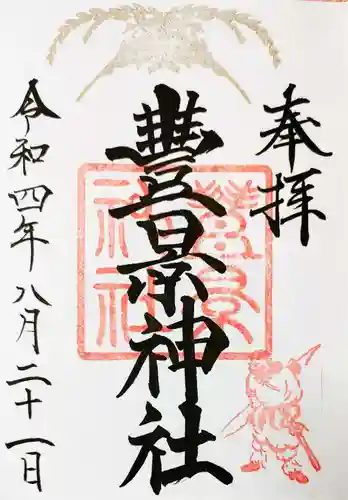 奉拝
豊景神社
令和四年八月二十一日